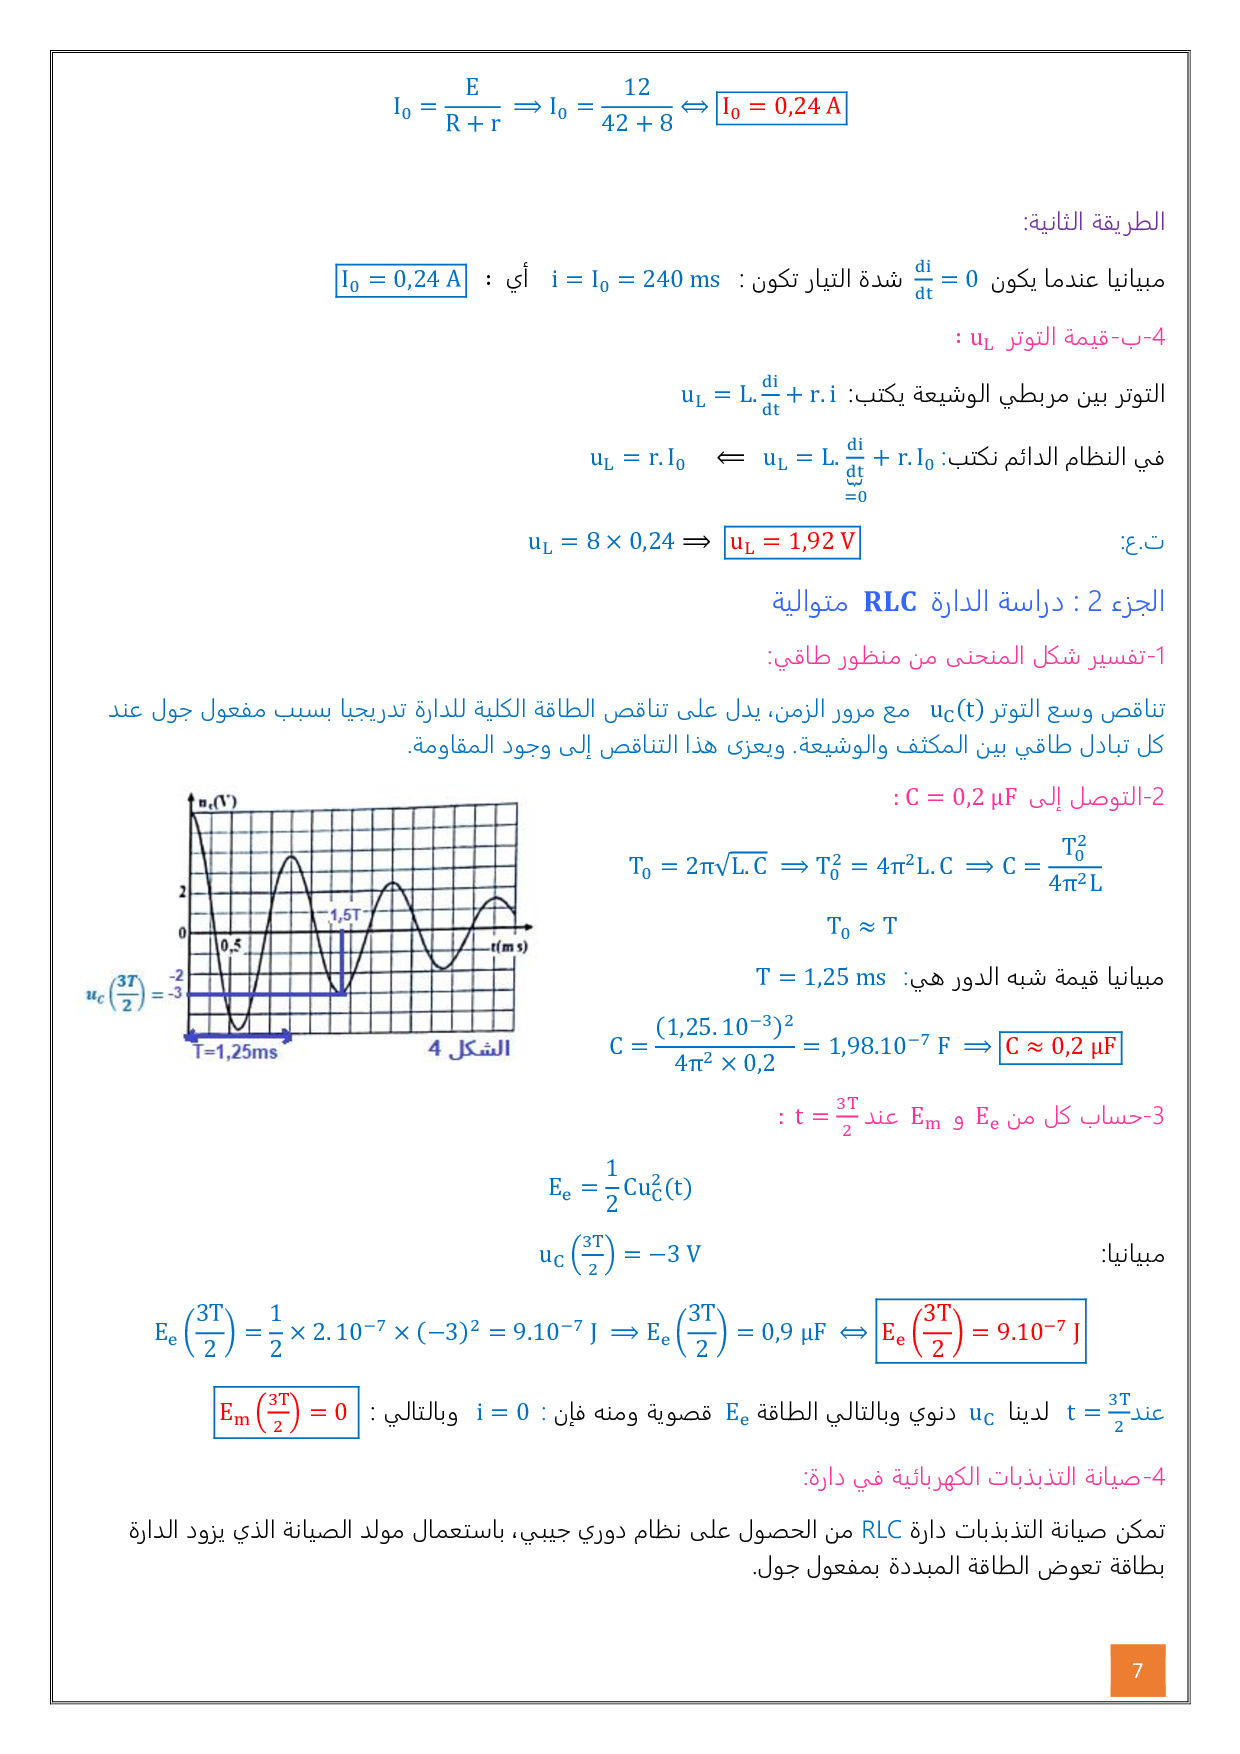 I₀ = E/(R + r) ⟹ I₀ = 12/(42 + 8) ⟺ I₀ = 0,24 A
الطريقة الثانية:
مبيانيا عندما يكون di/dt = 0 شدة التيار تكون : i = I₀ = 240 ms أي : I₀ = 0,24 A
4-ب-قيمة التوتر u_L :
التوتر بين مربطي الوشيعة يكتب: u_L = L. di/dt + r. i
في النظام الدائم نكتب: u_L = L. di/dt (=0) + r. I₀ ⟸ u_L = r. I₀
ت.ع: u_L = 8 × 0,24 ⟹ u_L = 1,92 V
الجزء 2 : دراسة الدارة RLC متوالية
1-تفسير شكل المنحنى من منظور طاقي:
تناقص وسع التوتر u_C(t) مع مرور الزمن، يدل على تناقص الطاقة الكلية للدارة تدريجيا بسبب مفعول جول عند
كل تبادل طاقي بين المكثف والوشيعة. ويعزى هذا التناقص إلى وجود المقاومة.
2-التوصل إلى C = 0,2 μF :
T₀ = 2π√(L. C) ⟹ T₀² = 4π²L. C ⟹ C = T₀²/(4π²L)
T₀ ≈ T
مبيانيا قيمة شبه الدور هي: T = 1,25 ms
C = (1,25. 10⁻³)²/(4π² × 0,2) = 1,98.10⁻⁷ F ⟹ C ≈ 0,2 μF
u_c(V)
2
1,5T
0
0,5
t(ms)
-2
u_C(3T/2) = -3
T=1,25ms
الشكل 4
3-حساب كل من E_e و E_m عند t = 3T/2 :
E_e = 1/2 Cu_C²(t)
مبيانيا: u_C(3T/2) = −3 V
E_e(3T/2) = 1/2 × 2. 10⁻⁷ × (−3)² = 9.10⁻⁷ J ⟹ E_e(3T/2) = 0,9 μF ⟺ E_e(3T/2) = 9.10⁻⁷ J
عند t = 3T/2 لدينا u_C دنوي وبالتالي الطاقة E_e قصوية ومنه فإن : i = 0 وبالتالي : E_m(3T/2) = 0
4-صيانة التذبذبات الكهربائية في دارة:
تمكن صيانة التذبذبات دارة RLC من الحصول على نظام دوري جيبي، باستعمال مولد الصيانة الذي يزود الدارة
بطاقة تعوض الطاقة المبددة بمفعول جول.
7